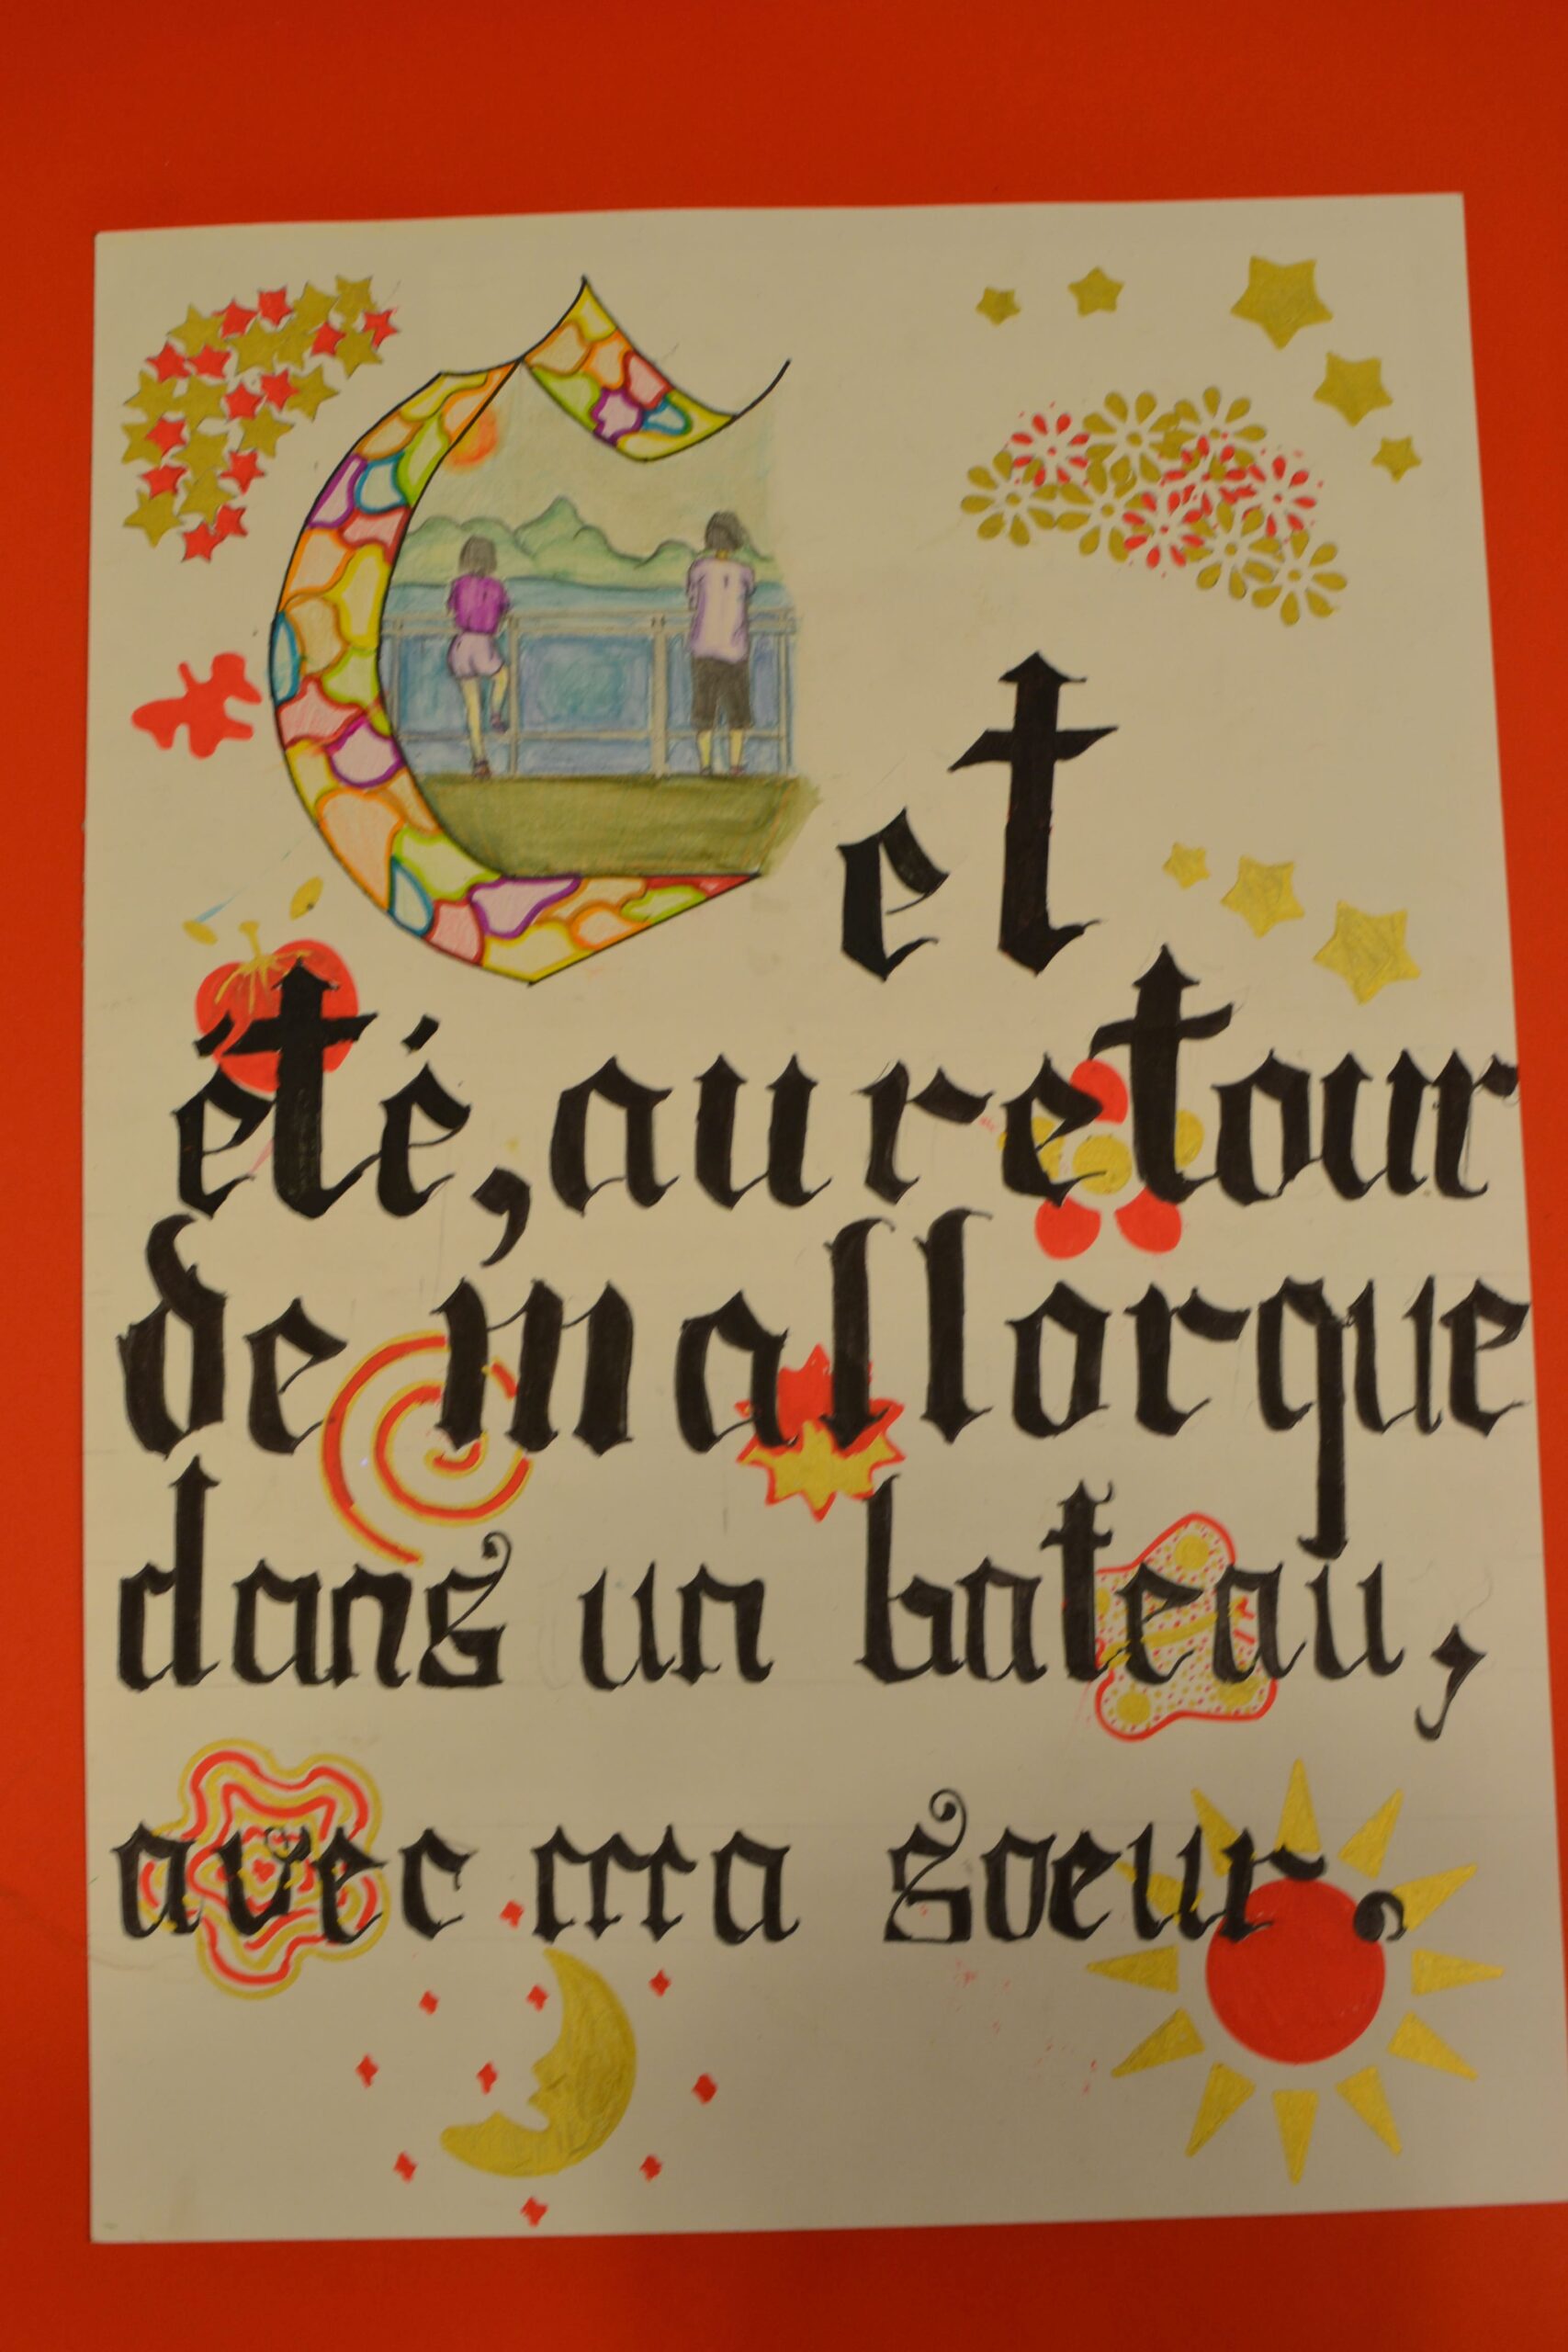 Cet
été, au retour
de mallorque
dans un bateau,
avec ma soeur.